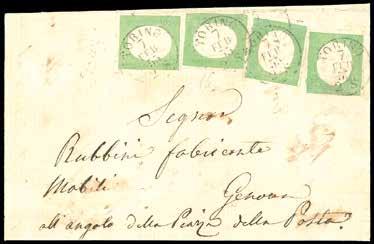 TORINO
7
FEB
TORINO
7
FEB
7
FEB
TORINO
7
FEB
Signor
Rubbini fabricante
Mobili
Genova
all'angolo della Piazza della Posta.